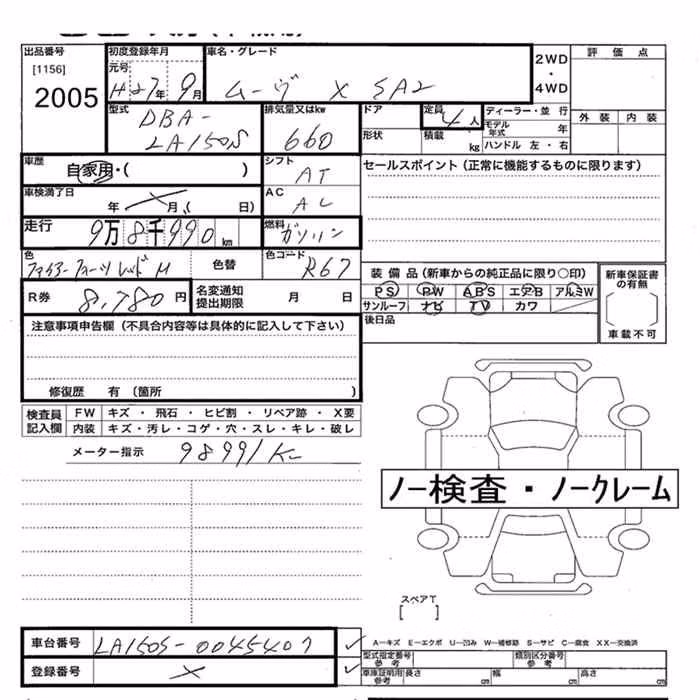 出品番号 初度登録年月 車名・グレード 2WD 評価点
[1156] 元号 ・
2005 H27年 9月 ムーヴ X SAⅡ 4WD
型式 排気量又はkw ドア 定員 4人 ディーラー・並 行 外装 内装
DBA- 660 モデル年式 年
LA150S 形状 積載 kg ハンドル 左・右
車歴 シフト セールスポイント(正常に機能するものに限ります)
自家用・( ) AT
車検満了日 AC
年 月( 日) AC
走行 燃料
9万8千990km ガソリン
色 色替 色コード 装備品(新車からの純正品に限り○印) 新車保証書の有無
R67 PS PW ABS エアB アルミW
R券 8,780円 名変通知提出期限 月 日 サンルーフ ナビ TV カワ
後日品 車載不可
注意事項申告欄(不具合内容等は具体的に記入して下さい)
修復歴 有(箇所 )
検査員 FW キズ・飛石・ヒビ割・リペア跡・X要
記入欄 内装 キズ・汚レ・コゲ・穴・スレ・キレ・破レ
メーター指示 98991K
ノー検査・ノークレーム
スペアT
[ ]
車台番号 LA150S-0045407 A-キズ E-エクボ U-凹み W-補修跡 S-サビ C-腐食 XX-交換済
型式指定番号 参考 類別区分番号 参考
登録番号 X 車庫証明用 参考 長さ cm 幅 cm 高さ cm